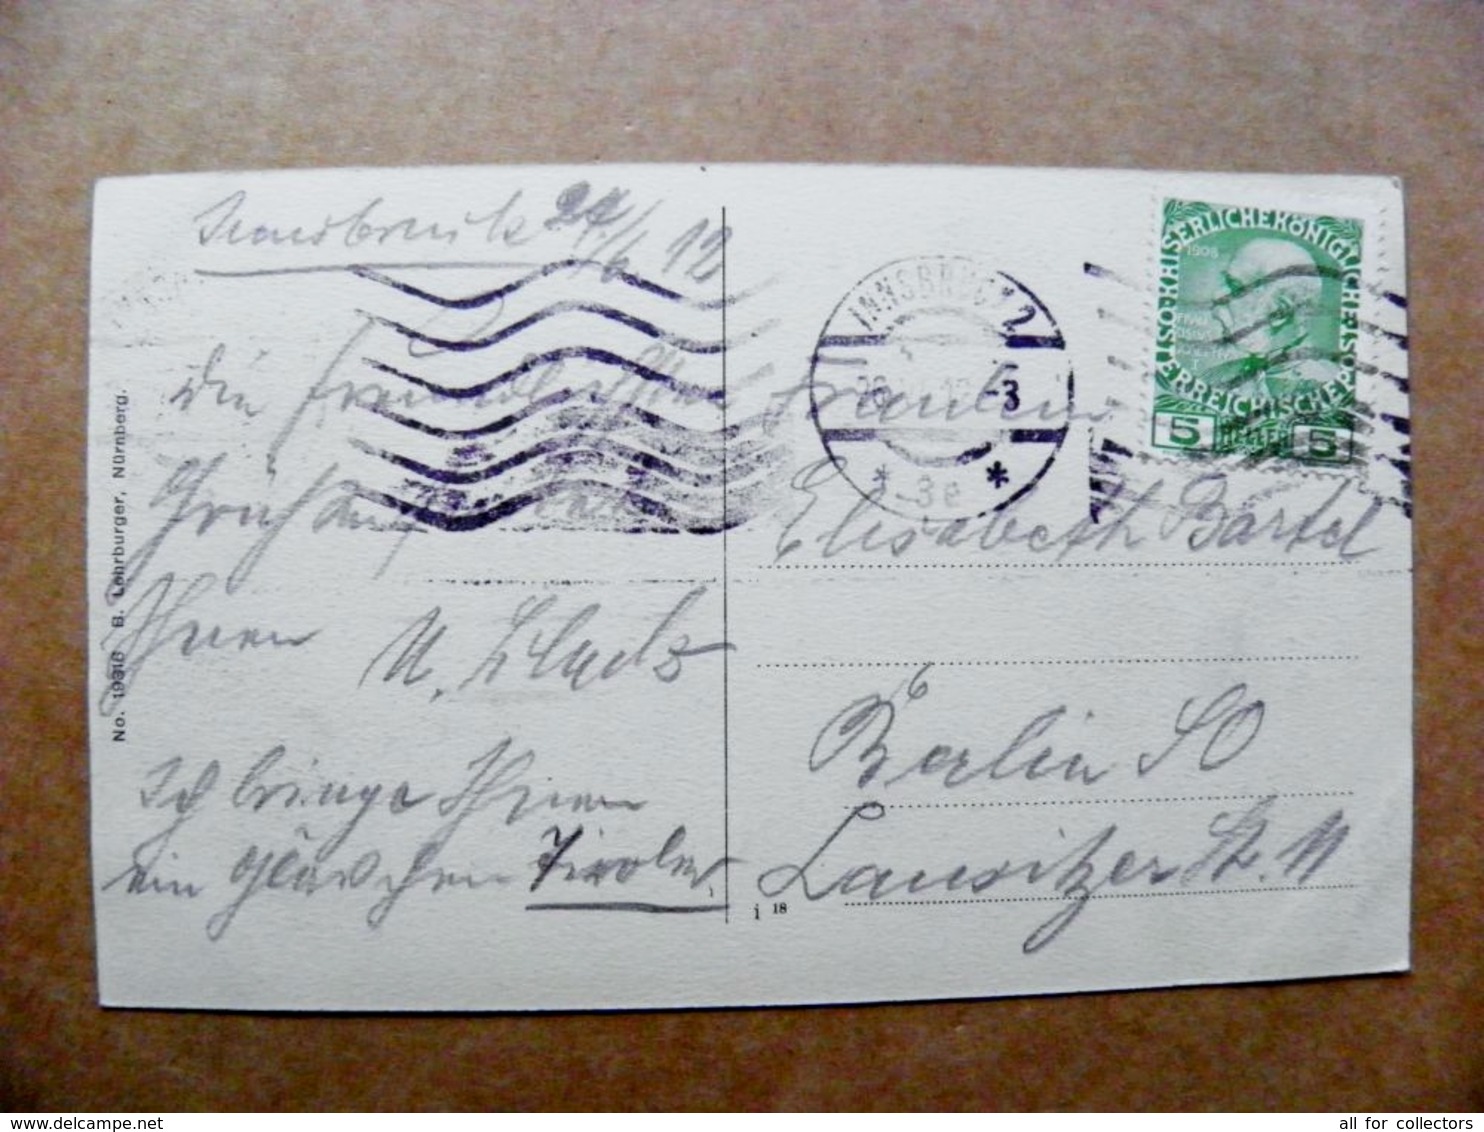 Innsbruck 27/6 12
Die freundlichsten
Grüße auf
Ihnen
U.
Ich bringe Ihnen
ein Gläschen Tiroler.
No. 19316 B. Lehrburger, Nürnberg.
INNSBRUCK 2
-3
* 3e *
KAISERLICHE KÖNIGLICHE
ÖSTERREICHISCHE POST
1908
5 HELLER 5
Fräulein
Elisabeth Bartel
Berlin SO
Lausitzer St. 11
i 18
all for collectors